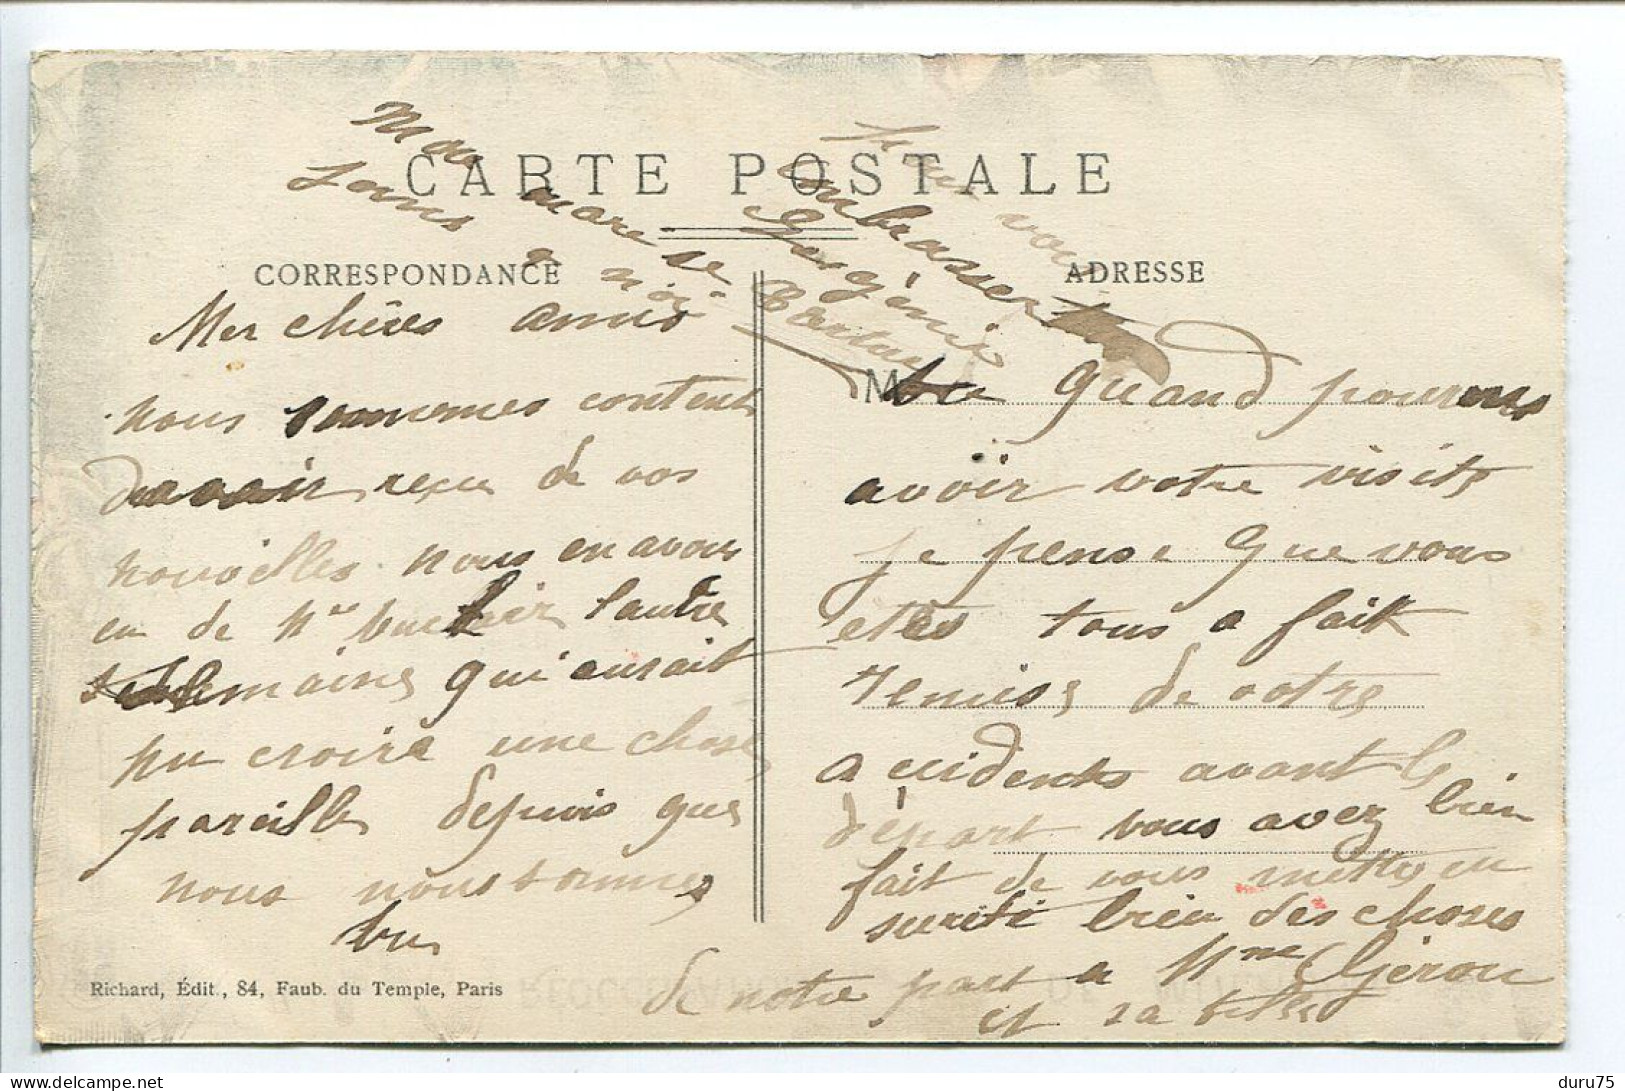 CARTE POSTALE
CORRESPONDANCE
ADRESSE
Mes chères amis
nous sommemes contents
davoir reçu de vos
nouvoelles nous en avons
eu de Mr l'autre
semaine qui aurait
pu croire une chose
pareille depuis que
nous nous sommes
bus
M
vu quand pourons
avoir votre visite
je pense que vous
etes tous a fait
remise de votre
accidents avant le
départ vous avez bien
fait de vous mettre en
sureté bien des choses
de notre part a Mme Géron
et sa fille
vous
embrasser
Eugénie
Richard, Édit., 84, Faub. du Temple, Paris
duru75